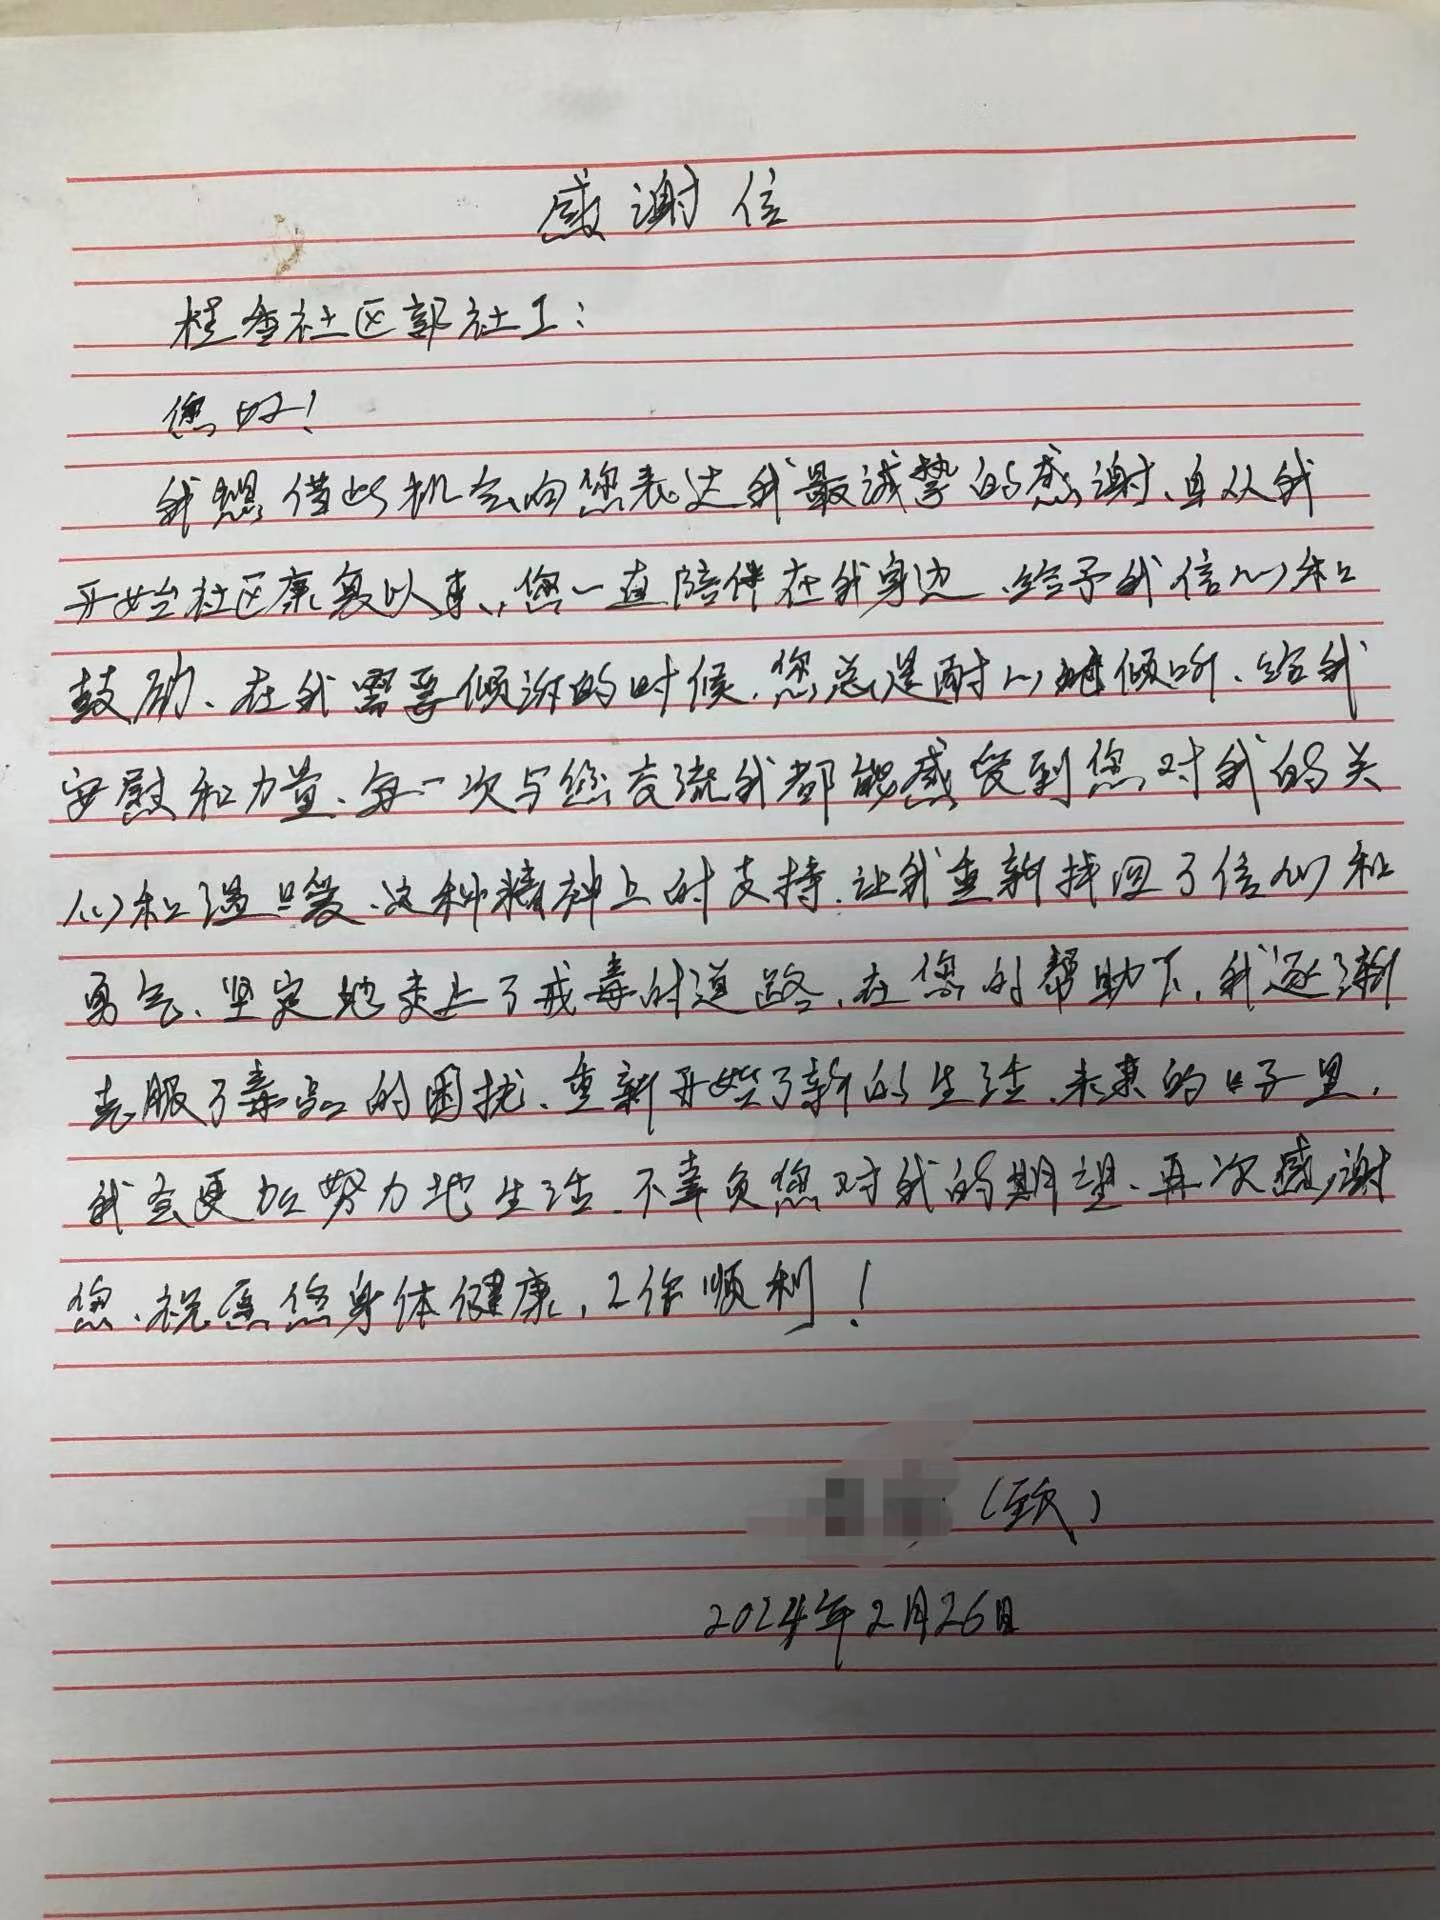 感谢信
桂香社区郭社工:
您好!
我想借此机会向您表达我最诚挚的感谢、自从我
开始社区康复以来,您一直陪伴在我身边、给予我信心和
鼓励、在我需要倾诉的时候、您总是耐心地倾听、给我
安慰和力量、每一次与您交流我都能感受到您对我的关
心和温暖、这种精神上的支持、让我重新找回了信心和
勇气、坚定地走上了戒毒的道路、在您的帮助下、我逐渐
克服了毒品的困扰、重新开始了新的生活、未来的日子里、
我会更加努力地生活、不辜负您对我的期望、再次感谢
您、祝愿您身体健康,工作顺利!
(致)
2024年2月26日